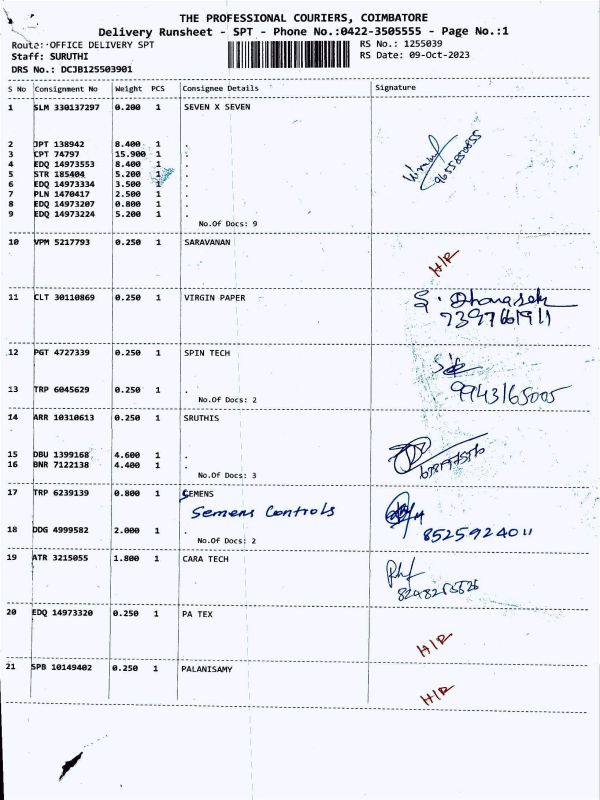 THE PROFESSIONAL COURIERS, COIMBATORE
Delivery Runsheet - SPT - Phone No.:0422-3505555 - Page No.:1
Route: OFFICE DELIVERY SPT RS No.: 1255039
Staff: SURUTHI RS Date: 09-Oct-2023
DRS No.: DCJB125503901
S No Consignment No Weight PCS Consignee Details Signature
1 SLM 330137297 0.200 1 SEVEN X SEVEN
2 JPT 138942 8.400 1 .
3 CPT 74797 15.900 1 .
4 EDQ 14973553 8.400 1 .
5 STR 185404 5.200 1 .
6 EDQ 14973334 3.500 1 .
7 PLN 1470417 2.500 1 .
8 EDQ 14973207 0.800 1 .
9 EDQ 14973224 5.200 1 .
No.Of Docs: 9
10 VPM 5217793 0.250 1 SARAVANAN H/R
11 CLT 30110869 0.250 1 VIRGIN PAPER
7397661911
12 PGT 4727339 0.250 1 SPIN TECH
13 TRP 6045629 0.250 1 . 9943165005
No.Of Docs: 2
14 ARR 10310613 0.250 1 SRUTHIS
15 DBU 1399168 4.600 1 .
16 BNR 7122138 4.400 1 .
No.Of Docs: 3
17 TRP 6239139 0.800 1 SEMENS
Semens Controls
18 DDG 4999582 2.000 1 . 8525924011
No.Of Docs: 2
19 ATR 3215055 1.800 1 CARA TECH
20 EDQ 14973320 0.250 1 PA TEX
H/R
21 SPB 10149402 0.250 1 PALANISAMY
H/R